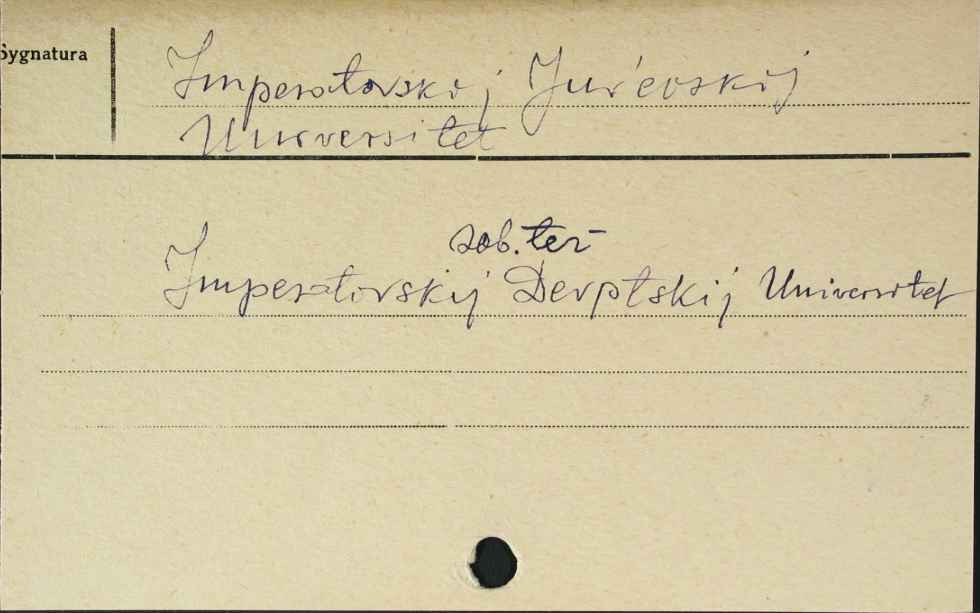 Sygnatura
Imperatorskij Jur'evskij
Universitet
zob. też
Imperatorskij Derptskij Universitet